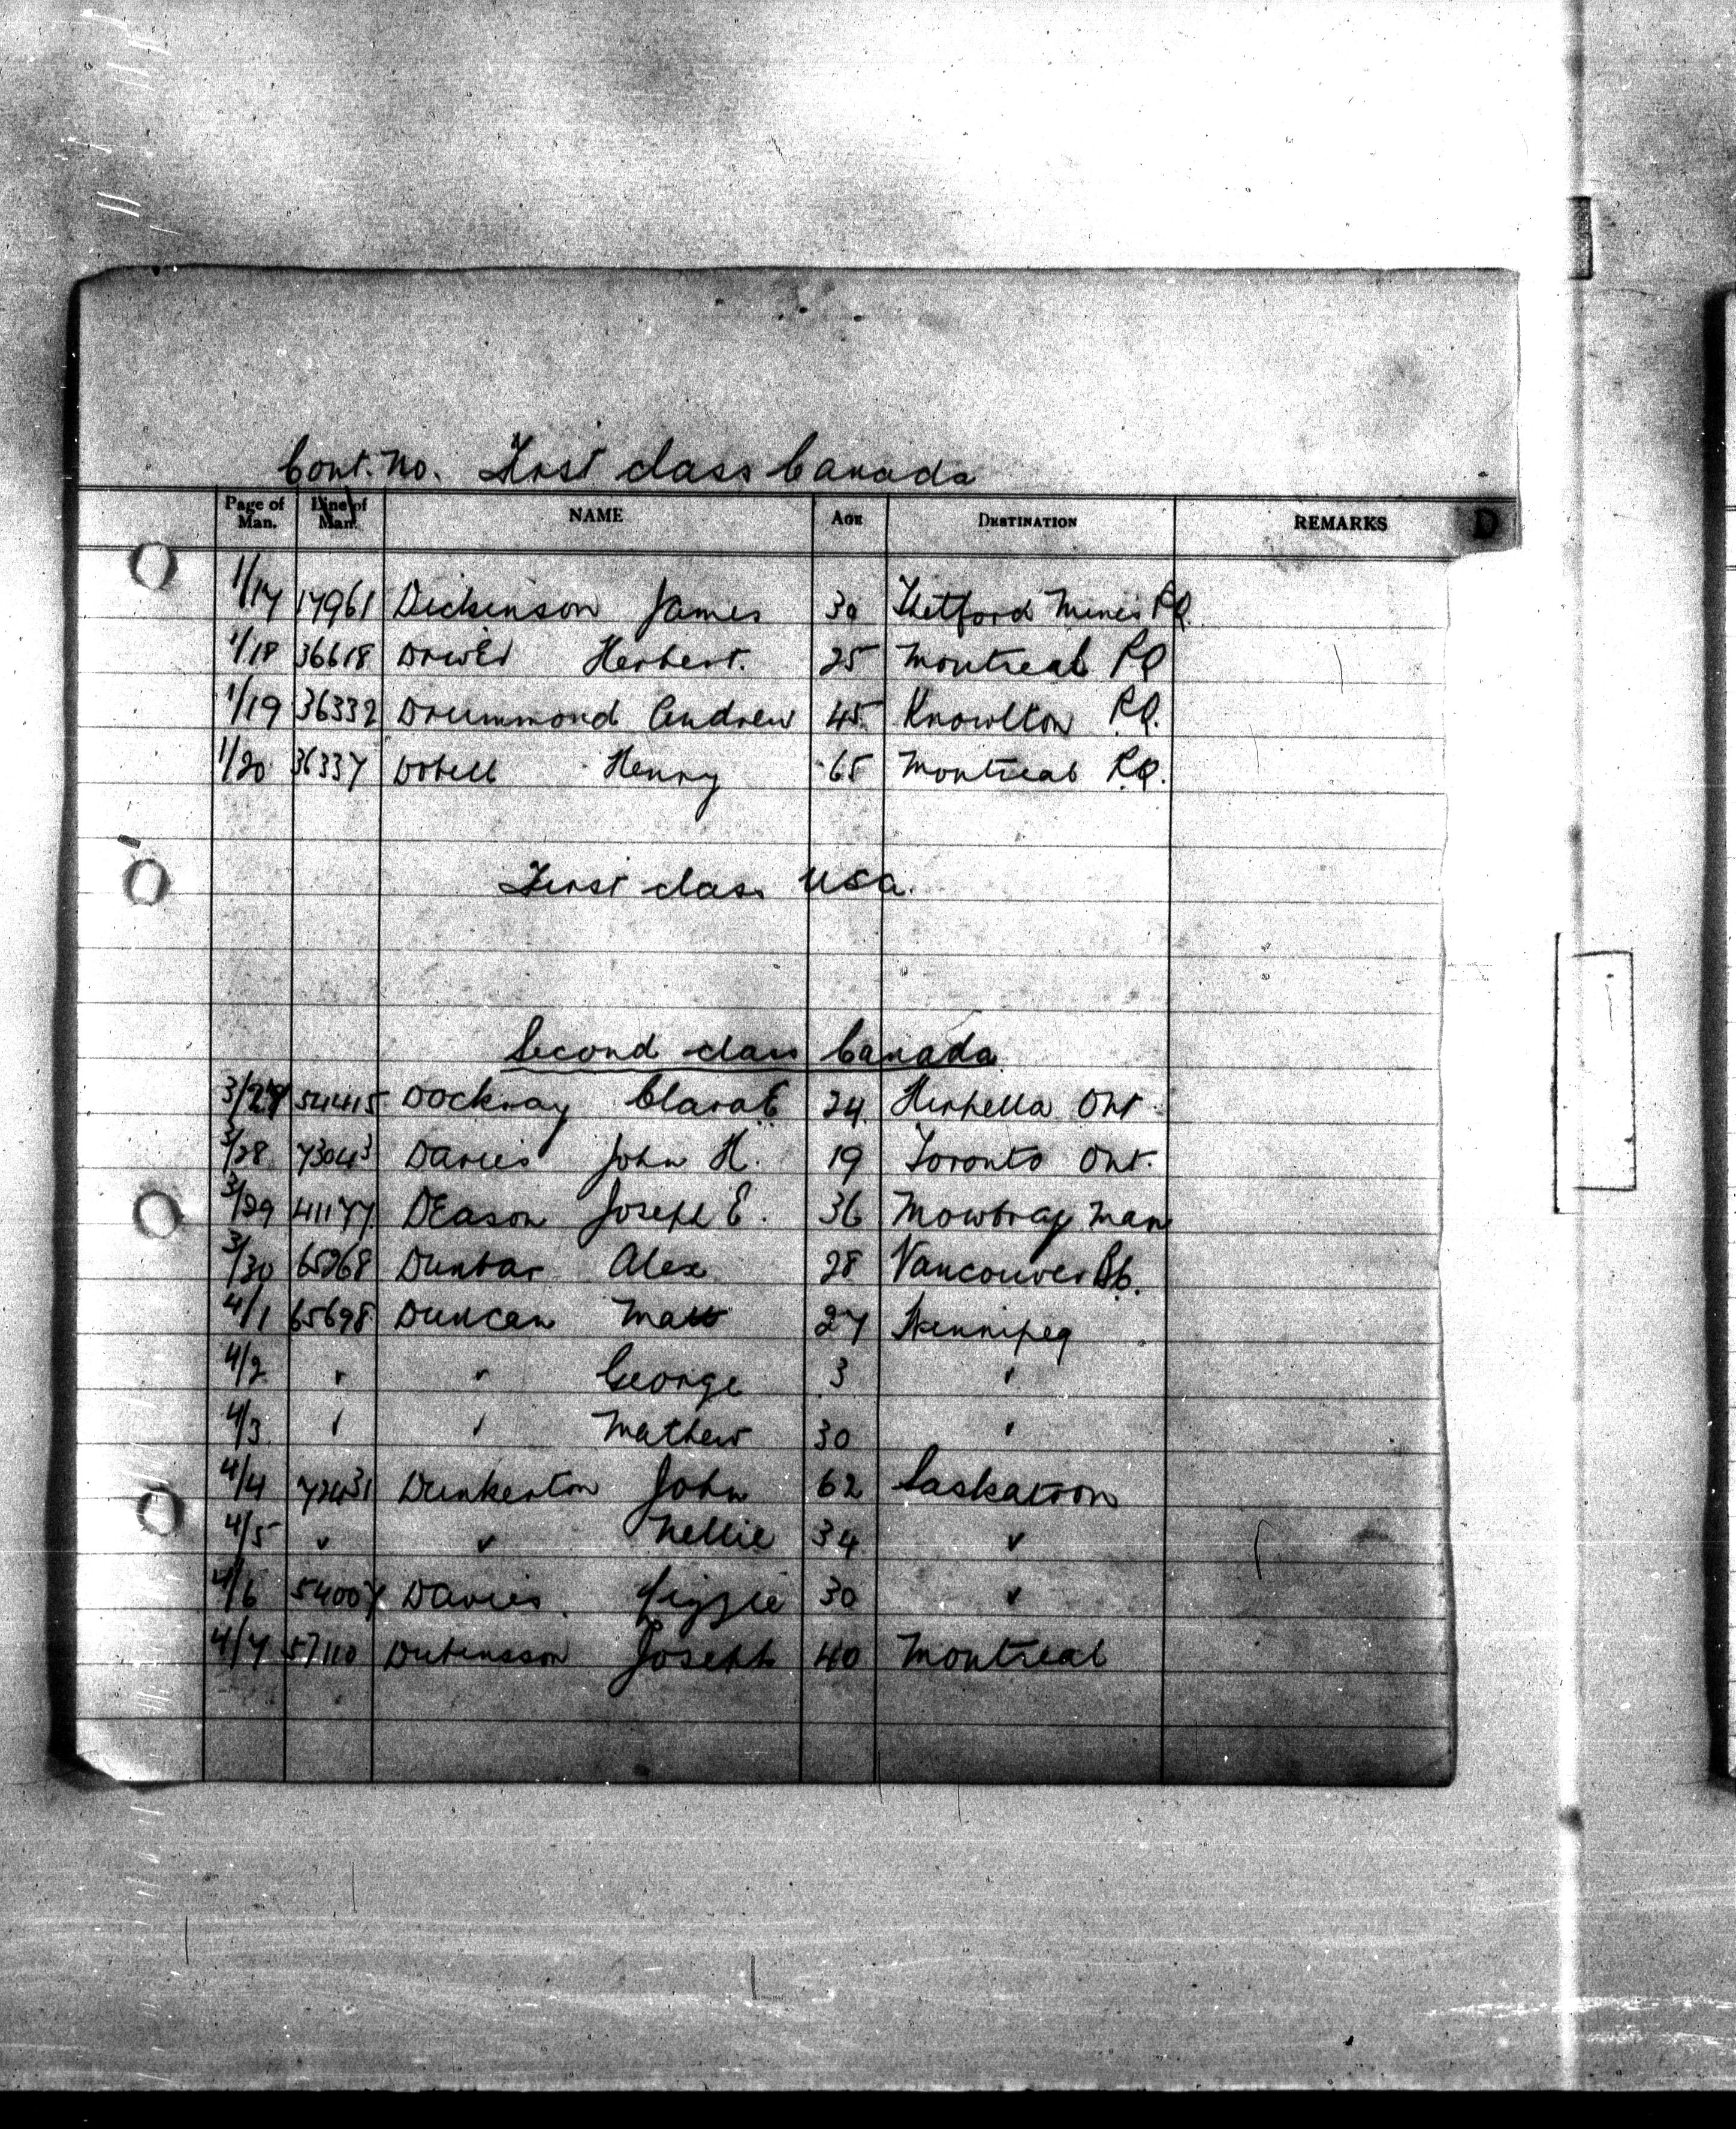 Cont. No. First class Canada
Page of Man. Line of Man. NAME AGE DESTINATION REMARKS D
1/17 17961 Dickinson James 30 Thetford Mines P.Q.
1/18 36618 Herbert. 25 Montreal P.Q
1/19 36332 Drummond Andrew 45 Knowlton P.Q.
1/20 36337 Dobell Henry 65 Montreal P.Q.
First class USA.
Second class Canada
3/27 54415 Dockray Clara E 24 Ont.
3/28 73043 Davies John H. 19 Toronto Ont.
3/29 41177 DEason Joseph E. 36 Mowbray Man
3/30 65268 Dunbar Alex 28 Vancouver B.C.
4/1 65698 Duncan 27 Winnipeg
4/2 " " George 3 "
4/3 " " Mathew 30 "
4/4 72431 Dunkerton John 62 Saskatoon
4/5 " " Nellie 34 "
4/6 54007 Davies Lizzie 30 "
4/7 57110 Joseph 40 Montreal